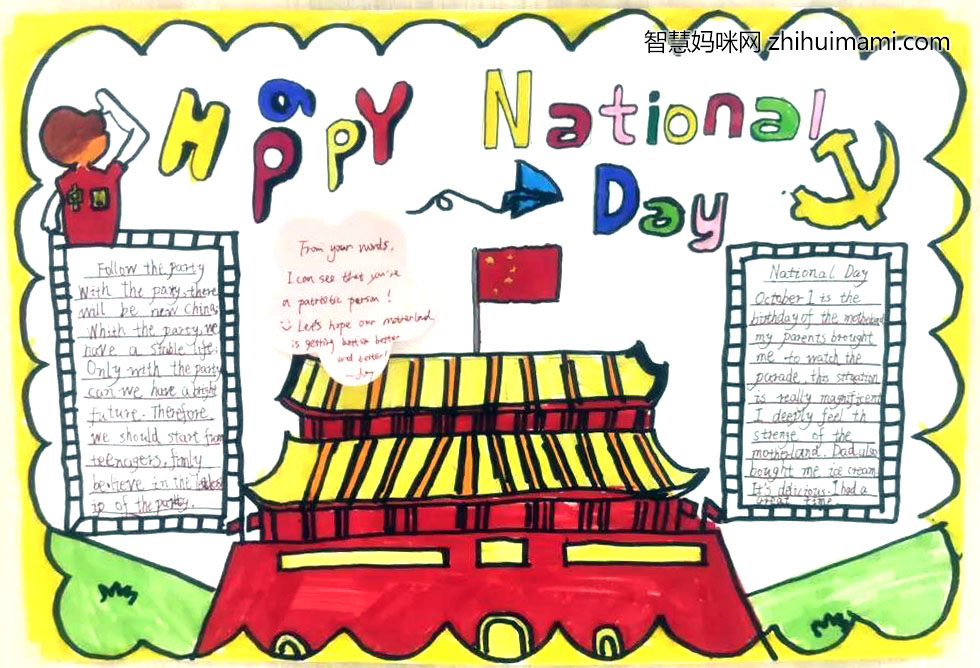 智慧妈咪网 zhihuimami.com
Happy National
Day
中国
Follow the party
With the party, there
will be new China,
Whith the party, we
have a stable life.
Only with the party
can we have a bright
future. Therefore
we should start from
teenagers, firmly
believe in the
ip of the party.
From your words,
I can see that you're
a patriotic person!
Let's hope our motherland
is getting better better
and better!
National Day
October 1 is the
birthday of the motherland
my parents brought
me to watch the
parade, the situation
is really magnificent
I deeply feel th
strenge of the
motherland. Dad also
bought me ice cream
It's delicious. I had a
great time